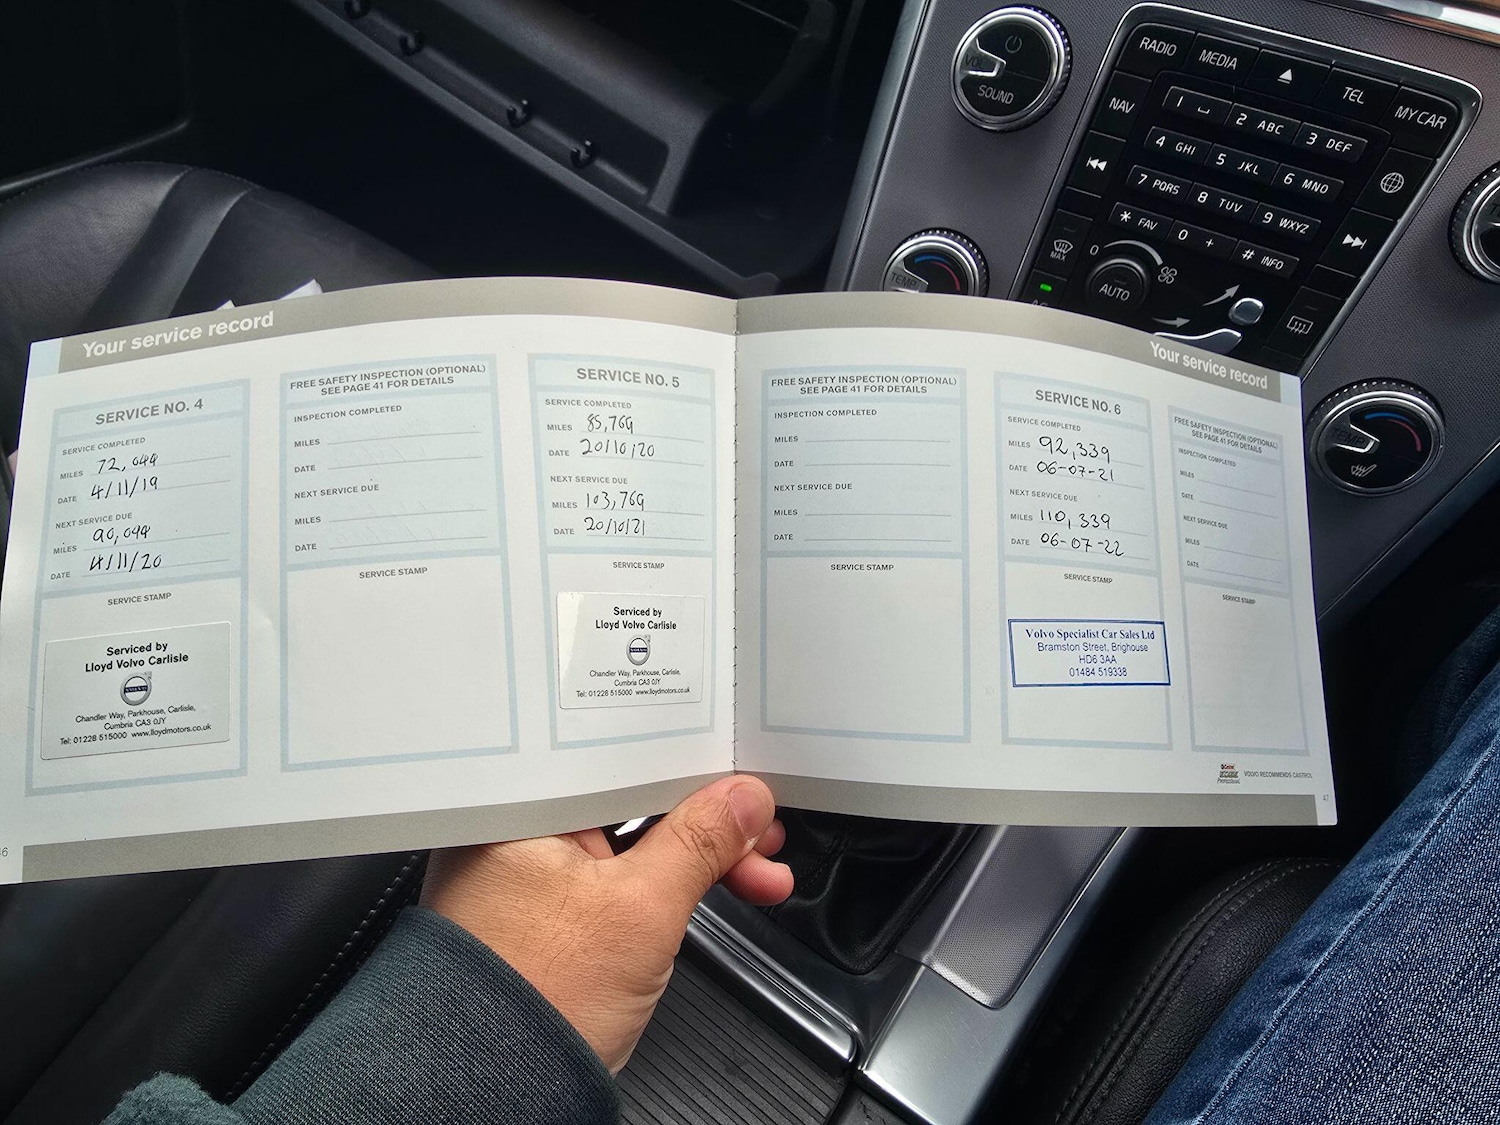 Your service record
SERVICE NO. 4
SERVICE COMPLETED
MILES 72,099
DATE 4/11/19
NEXT SERVICE DUE
MILES 90,099
DATE 4/11/20
SERVICE STAMP
Serviced by
Lloyd Volvo Carlisle
VOLVO
Chandler Way, Parkhouse, Carlisle,
Cumbria CA3 0JY
Tel: 01228 515000 www.lloydmotors.co.uk
FREE SAFETY INSPECTION (OPTIONAL)
SEE PAGE 41 FOR DETAILS
INSPECTION COMPLETED
MILES
DATE
NEXT SERVICE DUE
MILES
DATE
SERVICE STAMP
SERVICE NO. 5
SERVICE COMPLETED
MILES 85,769
DATE 20/10/20
NEXT SERVICE DUE
MILES 103,769
DATE 20/10/21
SERVICE STAMP
Serviced by
Lloyd Volvo Carlisle
VOLVO
Chandler Way, Parkhouse, Carlisle,
Cumbria CA3 0JY
Tel: 01228 515000 www.lloydmotors.co.uk
Your service record
FREE SAFETY INSPECTION (OPTIONAL)
SEE PAGE 41 FOR DETAILS
INSPECTION COMPLETED
MILES
DATE
NEXT SERVICE DUE
MILES
DATE
SERVICE STAMP
SERVICE NO. 6
SERVICE COMPLETED
MILES 92,339
DATE 06-07-21
NEXT SERVICE DUE
MILES 110,339
DATE 06-07-22
SERVICE STAMP
Volvo Specialist Car Sales Ltd
Bramston Street, Brighouse
HD6 3AA
01484 519338
FREE SAFETY INSPECTION (OPTIONAL)
SEE PAGE 41 FOR DETAILS
INSPECTION COMPLETED
MILES
DATE
NEXT SERVICE DUE
MILES
DATE
SERVICE STAMP
Castrol
EDGE
Professional
VOLVO RECOMMENDS CASTROL
47
VOL
SOUND
RADIO MEDIA TEL MY CAR
NAV
1 2 ABC 3 DEF
4 GHI 5 JKL 6 MNO
7 PQRS 8 TUV 9 WXYZ
* FAV 0 + # INFO
MAX
0
AUTO
AC
TEMP
TEMP